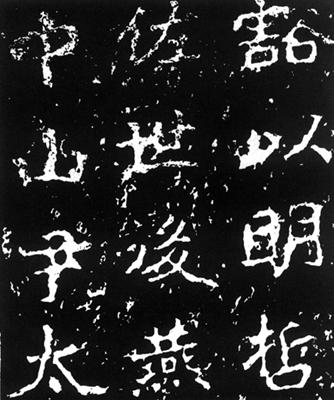 豁以明哲
佐世後燕
中山尹太